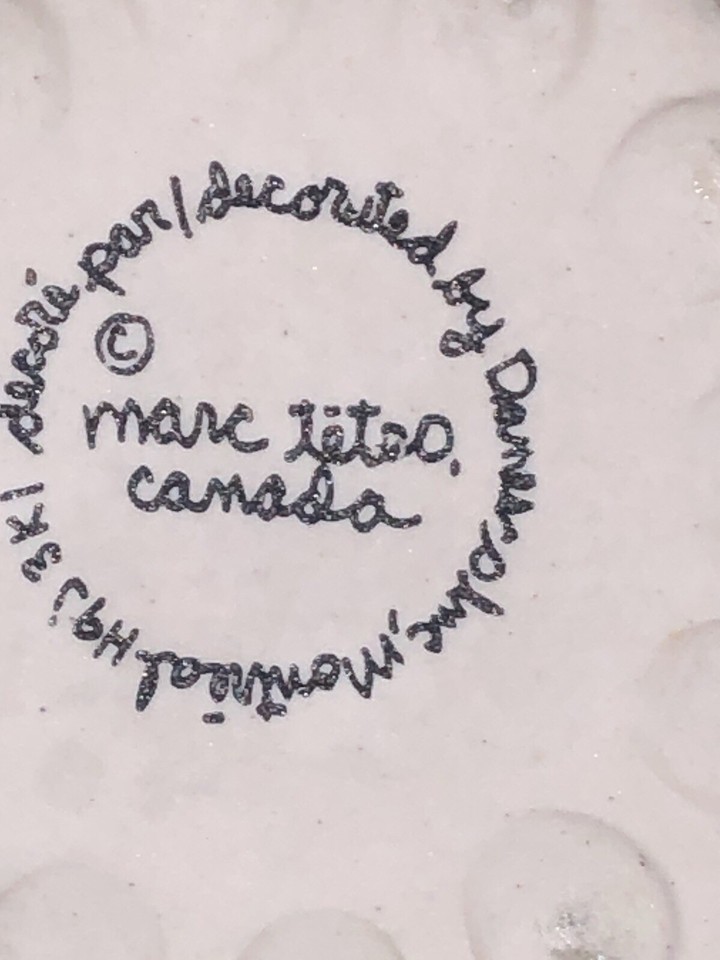 décoré par/decorated by Danesco Inc, Montréal H9J 3K1
©
marc tétro.
canada